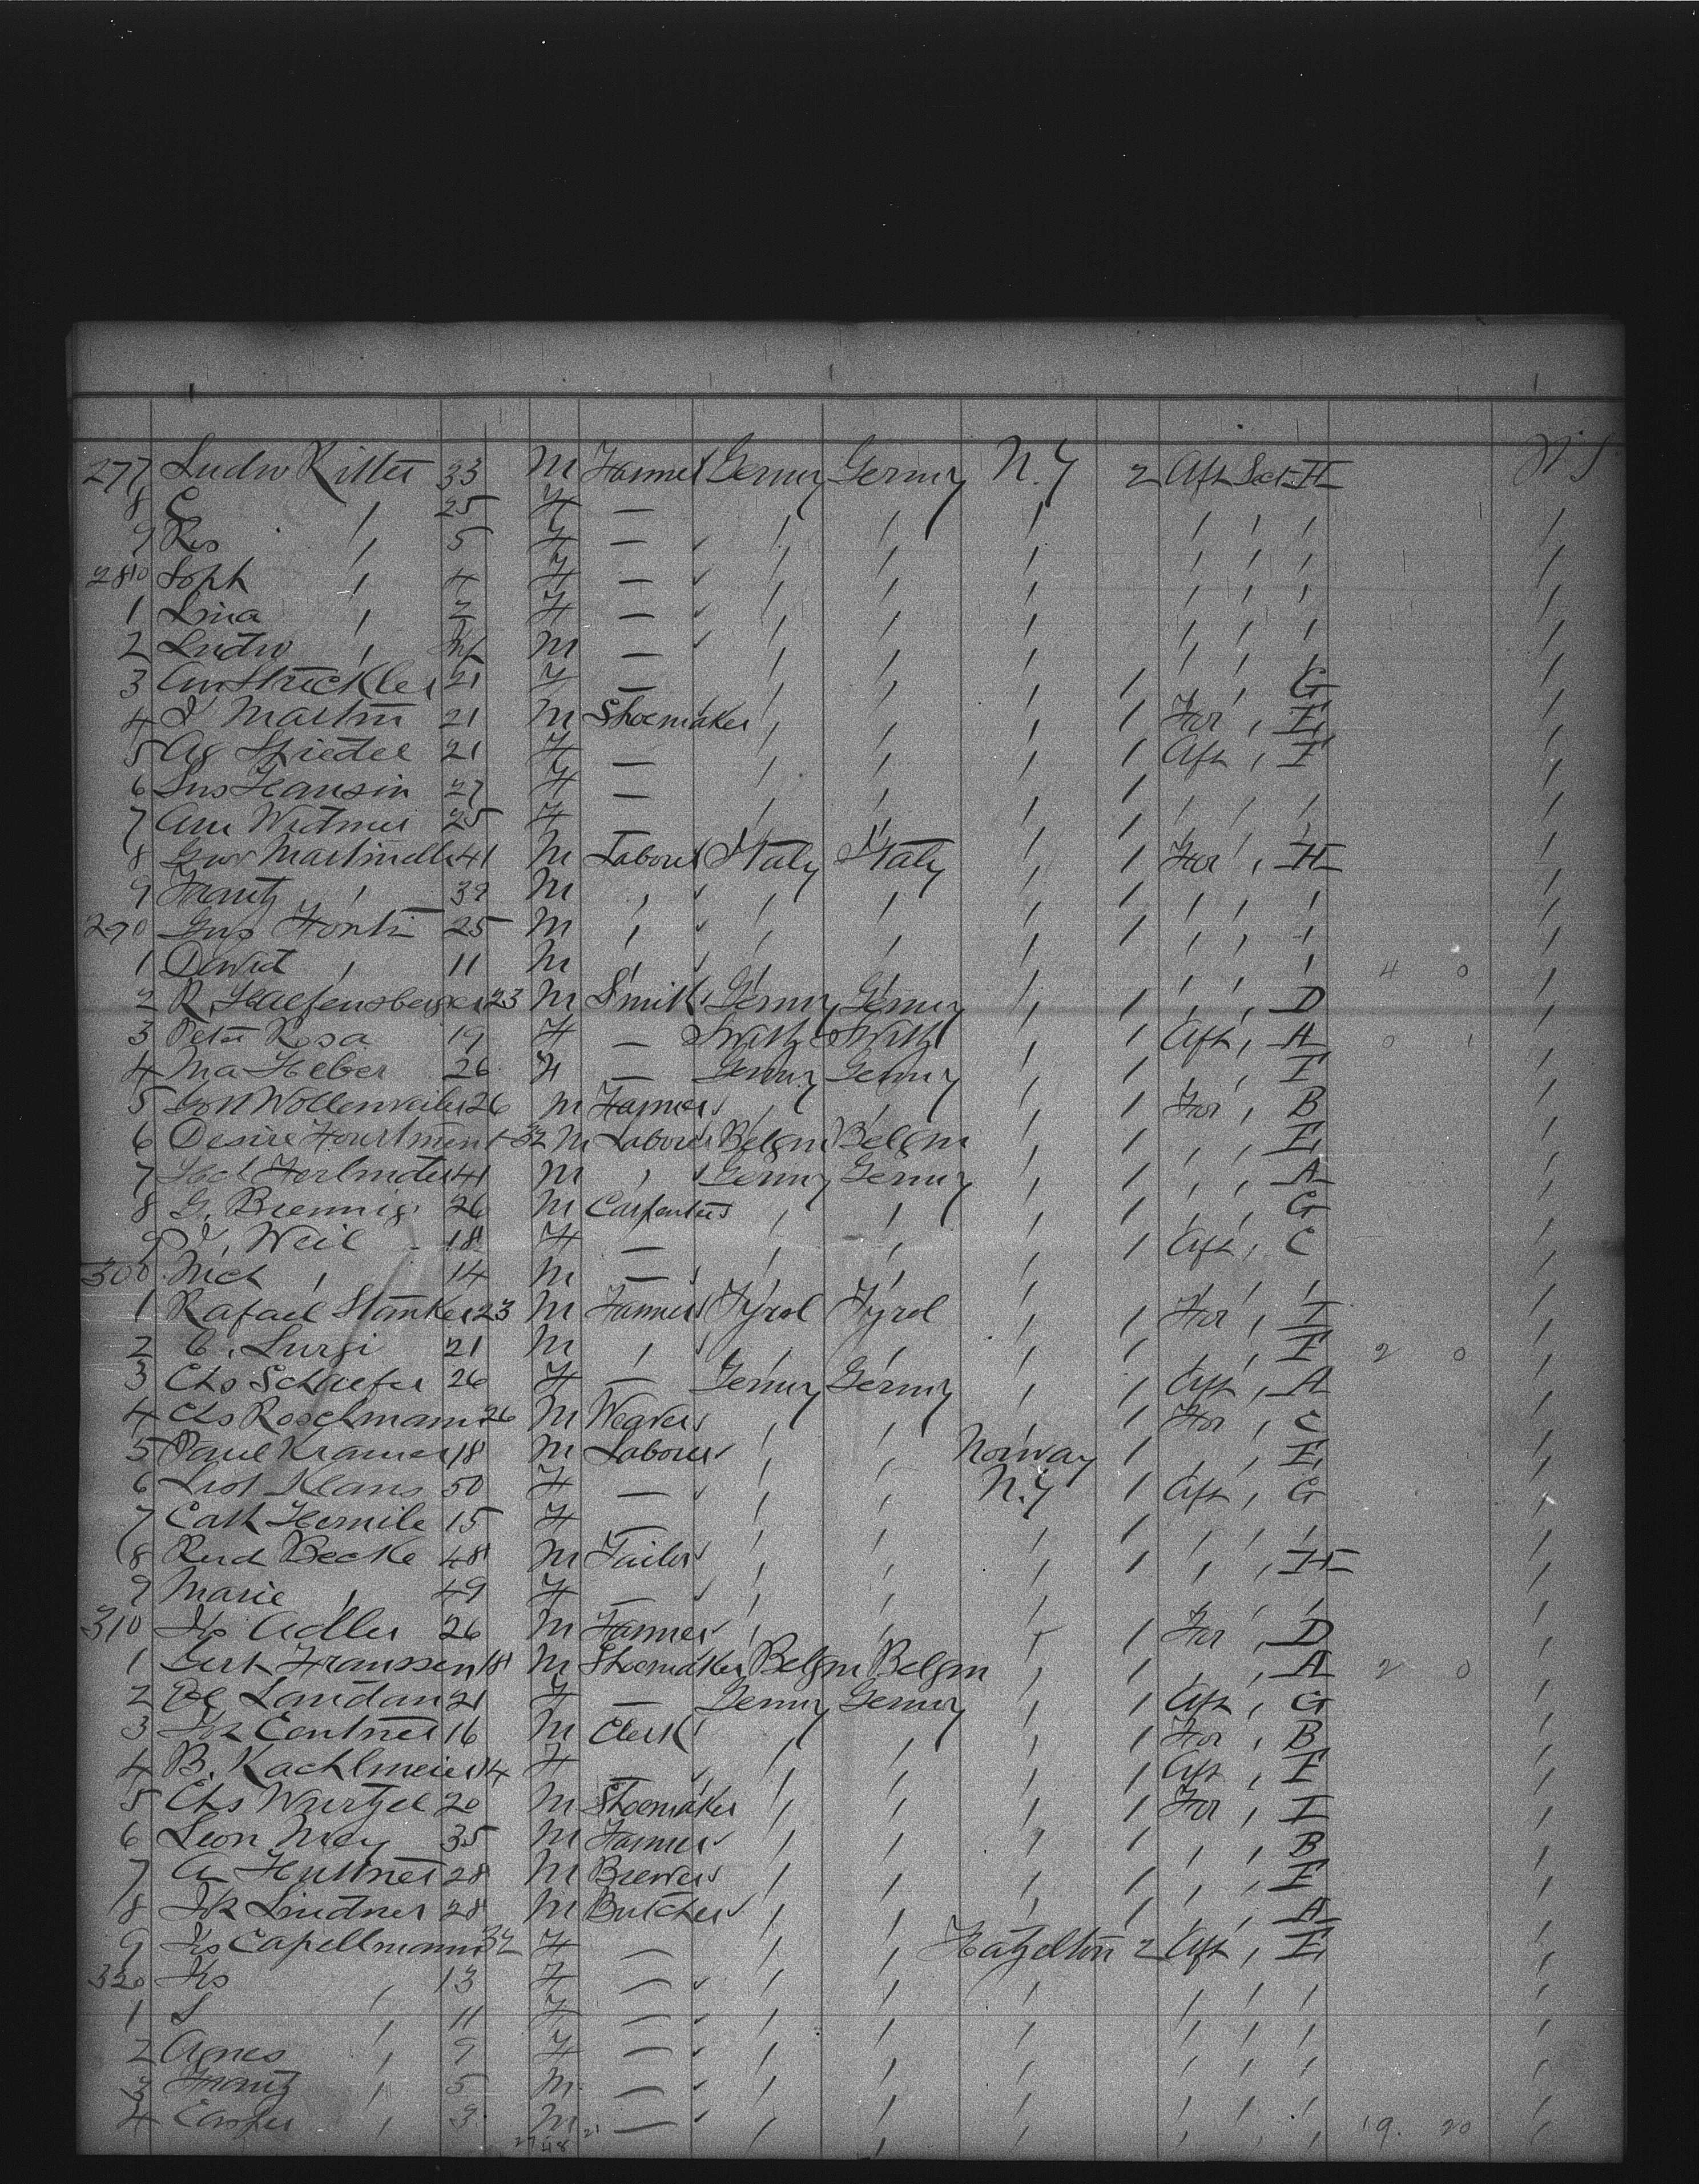 277 Ludw Ritter 33 M Farmer Germny Germny N.Y 2 Aft Sect H N.S
8 C " 25 F — " " " " " " "
9 Ros " 5 F — " " " " " " "
280 Soph " 4 F — " " " " " " "
1 Lina " 2 F — " " " " " " "
2 Ludw " Inf M — " " " " " " "
3 Strickler 21 F — " " " 1 " " G "
4 J Martin 21 M Shoemaker " " " 1 For " E "
5 Ag Spiedel 21 F — " " " 1 Aft " F "
6 Hansin 27 F — " " " 1 " " " "
7 Ann Widmer 25 F — " " " 1 " " " "
8 Martinelli 41 M Laborer Italy Italy " 1 For " H "
9 Frantz " 39 M " " " " 1 " " " "
290 Gus Fonti 25 M " " " " 1 " " " "
1 David " 11 M " " " " " " " 4 0 "
2 R Haefensberger 23 M Smith Germny Germny " 1 " " D "
3 Peter Rosa 19 F — Switz Switz " 1 Aft " A 0 1 "
4 Ma Heber 26 F — Germny Germny " 1 " " F "
5 Gott Wollenweber 26 M Farmer " " " 1 For " B "
6 Desire Hourtment 32 M Laborer Belgm Belgm " 1 " " E "
7 41 M " Germny Germny " 1 " " A "
8 G. Brennig 26 M Carpenter " " " 1 " " G "
9 J. Weil 18 F — " " " 1 Aft " C "
300 Nich " 14 M — " " " " " " "
1 Rafael Stanker 23 M Farmer Tyrol Tyrol " 1 For " I "
2 C. Lurgi 21 M " " " " 1 " " F 2 0 "
3 Chs Schaefer 26 F — Germny Germny " 1 Aft " A "
4 Chs Roschmann 26 M Weaver " " " 1 For " C "
5 Paul Kramer 18 M Laborer " " Norway 1 " " E "
6 Klaus 50 F — " " N.Y 1 Aft " G "
7 Cath Hermile 15 F — " " " 1 " " " "
8 Rud Becke 48 M Tailor " " " 1 " " H "
9 Marie " 49 F — " " " " " " "
310 Js Adler 26 M Farmer " " " 1 For " D "
1 Gert Franssen 18 M Shoemaker Belgm Belgm " 1 " " A 2 0 "
2 Landau 21 F — Germny Germny " 1 Aft " G "
3 Jos Centner 16 M Clerk " " " 1 For " B "
4 B. Kachlmeier 14 F — " " " 1 Aft " F "
5 Chs Wurtzel 20 M Shoemaker " " " 1 For " I "
6 Leon May 35 M Farmer " " " 1 " " B "
7 A Huttner 28 M Brewer " " " 1 " " F "
8 Jos Lindner 28 M Butcher " " " 1 " " A "
9 Js Capellmann 32 F — " " Hazelton 2 Aft " E "
320 Js " 13 F — " " " " " " "
1 S " 11 F — " " " " " " "
2 Agnes " 9 F — " " " " " " "
3 Frantz " 5 M — " " " " " " "
4 Casper " 3 M — " " " " " " 19. 20 "
27 48 21